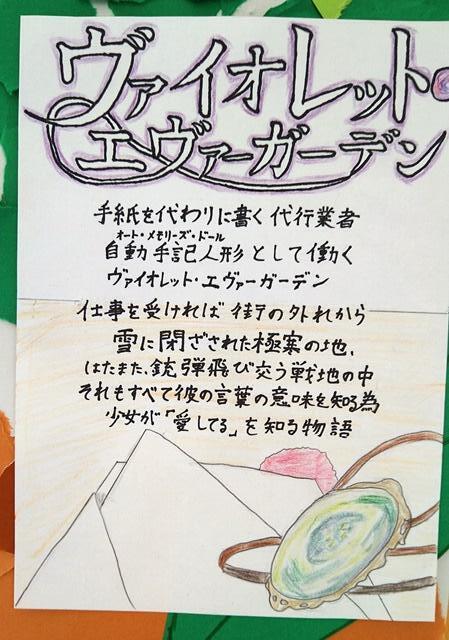 ヴァイオレット・
エヴァーガーデン
手紙を代わりに書く代行業者
オート・メモリーズ・ドール
自動手記人形として働く
ヴァイオレット・エヴァーガーデン
仕事を受ければ街の外れから
雪に閉ざされた極案の地、
はたまた、銃弾飛び交う戦地の中
それもすべて彼の言葉の意味を知る為
少女が「愛してる」を知る物語